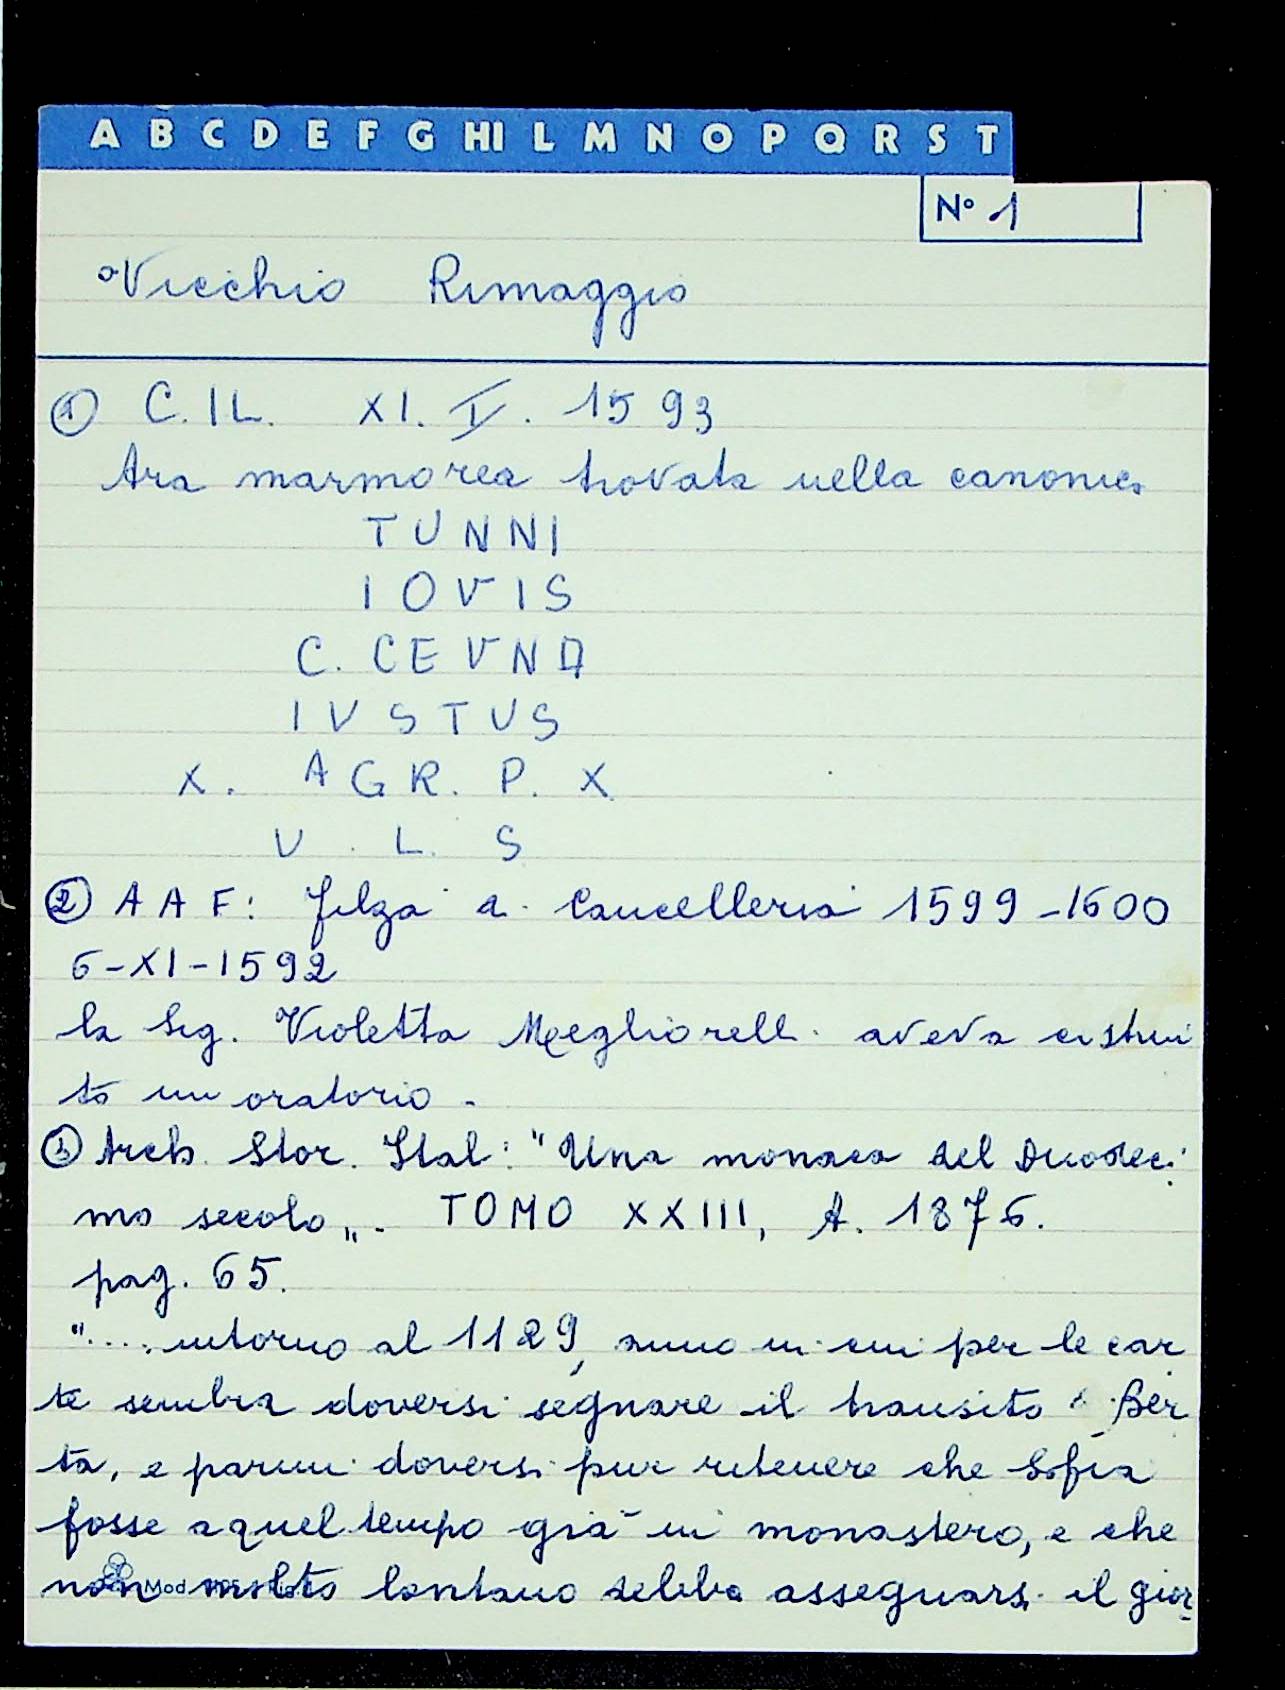 A B C D E F G HI L M N O P Q R S T
N° 1
Vicchio Rimaggio
① C.IL. XI. I. 1593
Ara marmorea trovata nella canonica
TUNNI
IOVIS
C. CEVNA
IVSTUS
X. AGR. P. X
V. L. S
② A A F: filza a. Cancelleria 1599-1600
6-XI-1592
la Sig. Violetta Megliorelli aveva costrui
to un oratorio.
③ Arch. Stor. Ital: "Una monaca del duodeci
mo secolo„. TOMO XXIII, A. 1876.
pag. 65.
".... intorno al 1129, anno in cui per le car
te sembra doversi segnare il transito di Ber
ta, e parmi doversi pur ritenere che Sofia
fosse a quel tempo già in monastero, e che
non molto lontano debba assegnarsi il gior
Mod